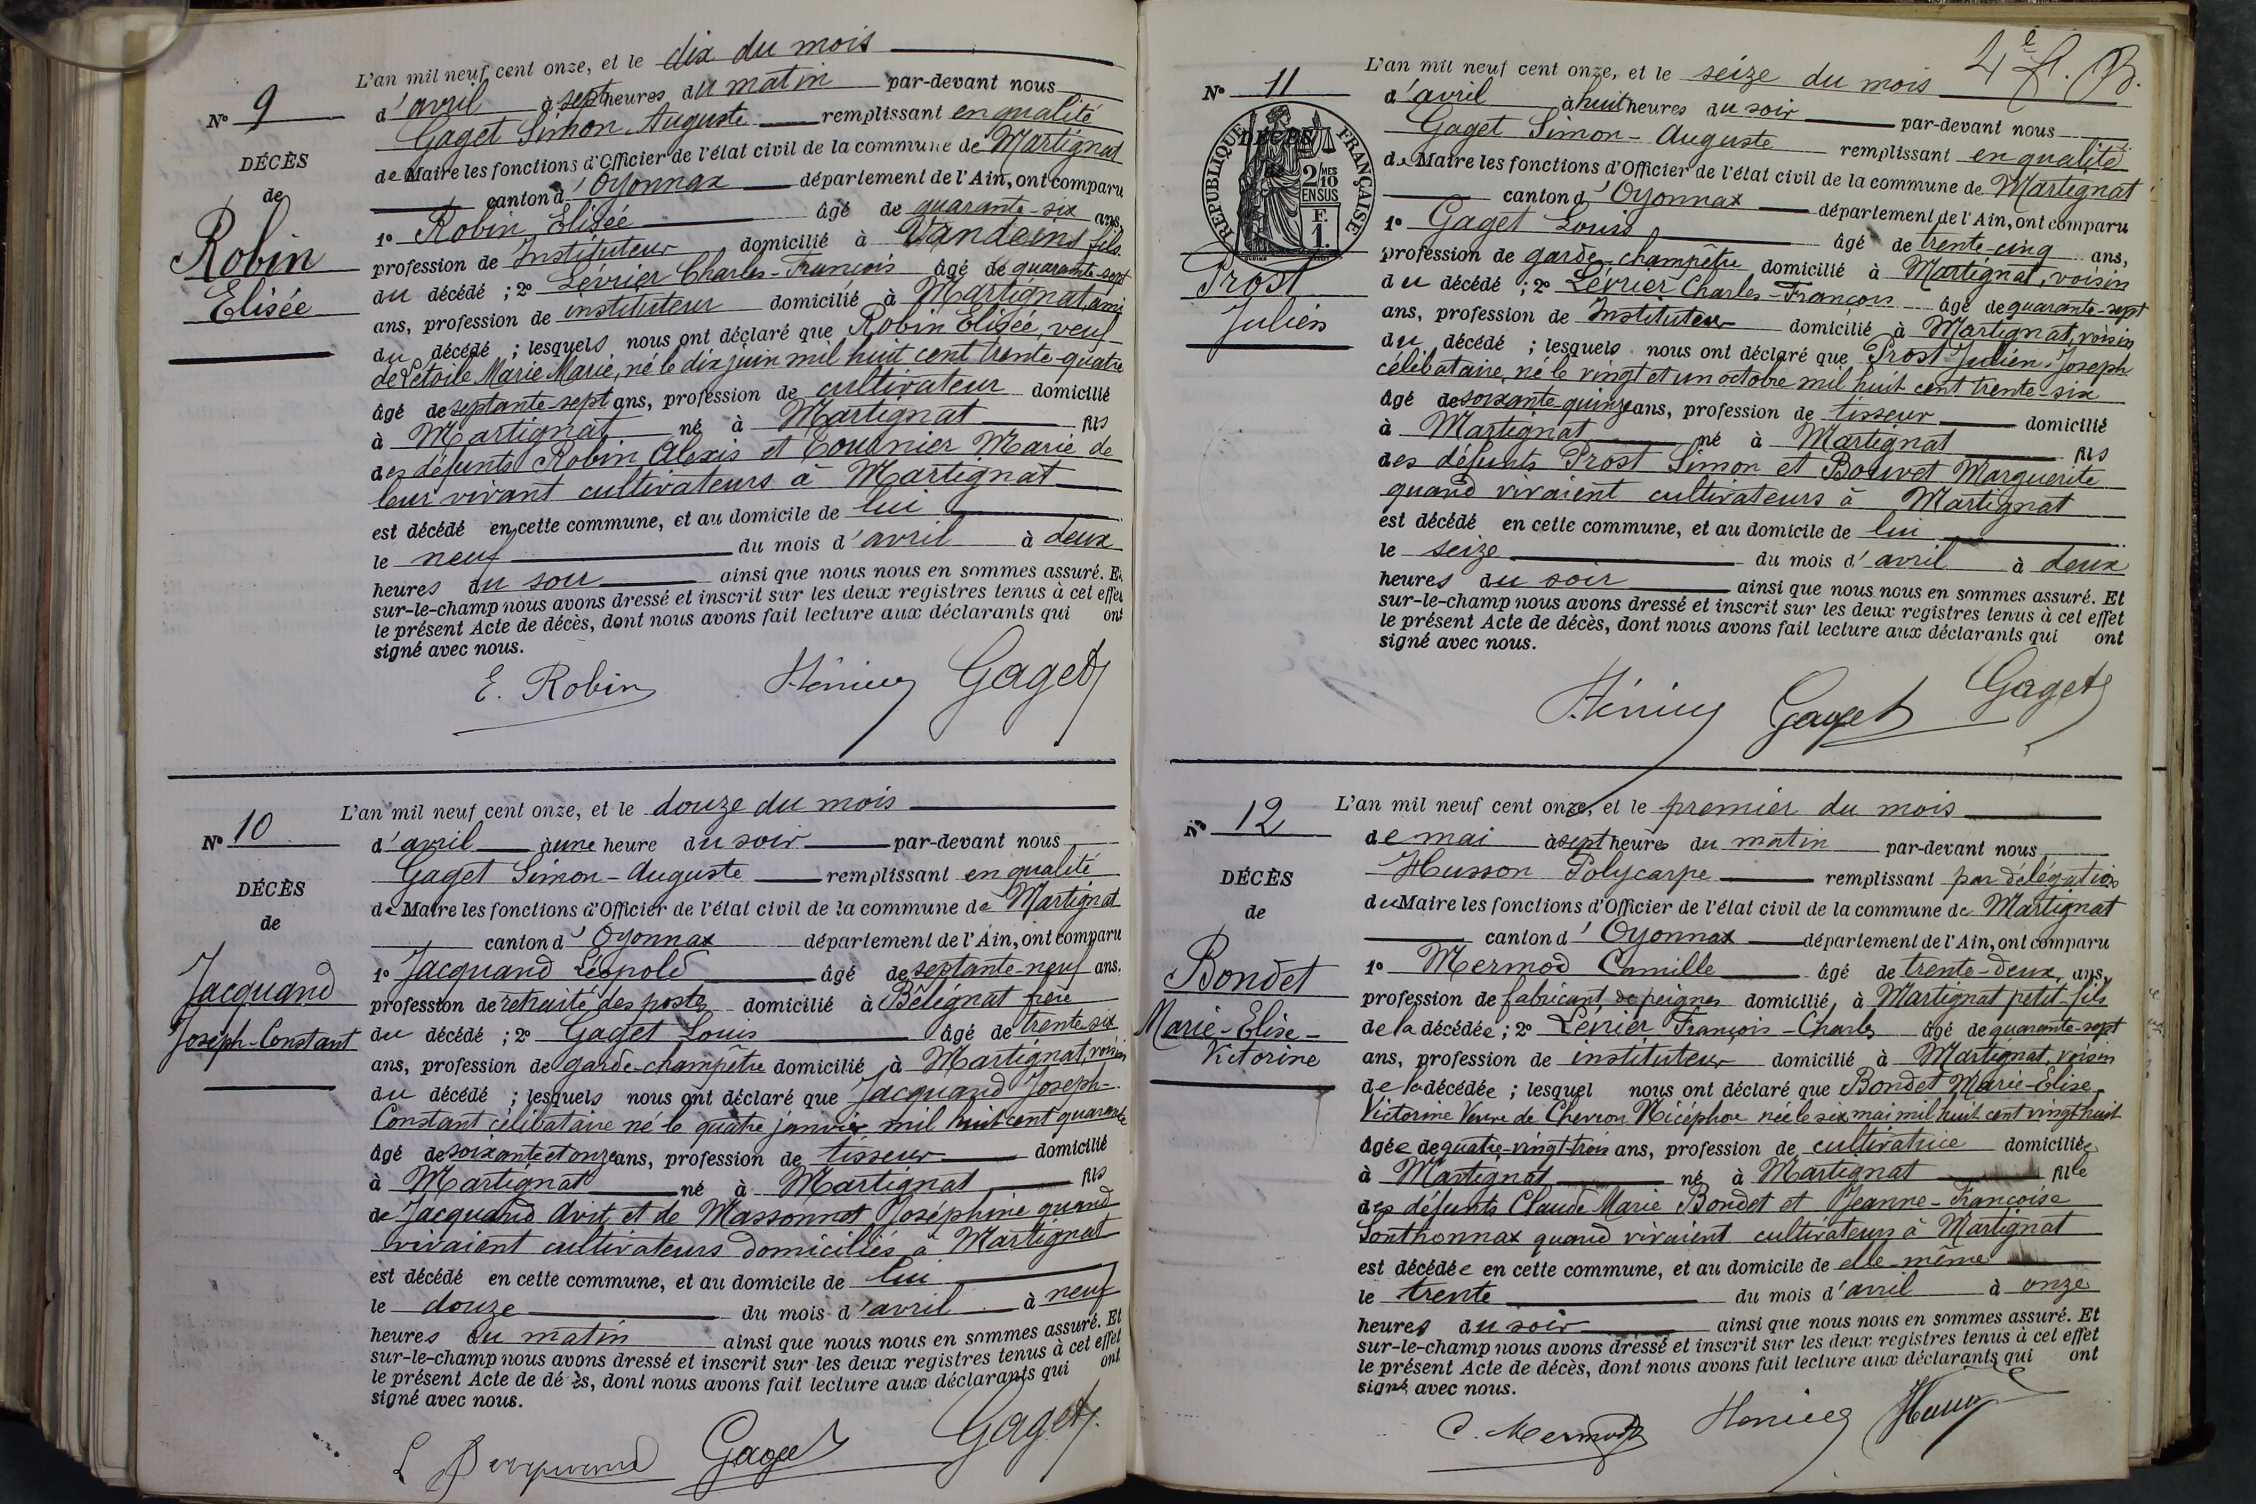 L'an mil neuf cent onze, et le dix du mois
No 9
d'avril à sept heures du matin par-devant nous
Gaget Simon Auguste remplissant en qualité
de Maire les fonctions d'Officier de l'état civil de la commune de Martignat
canton d'Oyonnax département de l'Ain, ont comparu
1o Robin Elisée âgé de quarante-six ans,
profession de Instituteur domicilié à Vandeins fils
du décédé ; 2o Lévrier Charles-François âgé de quarante-sept
ans, profession de instituteur domicilié à Martignat, ami
du décédé ; lesquels nous ont déclaré que Robin Elisée, veuf
de Létoile Marie Marie, né le dix juin mil huit cent trente-quatre
âgé de septante-sept ans, profession de cultivateur domicilié
à Martignat né à Martignat fils
des défunts Robin Alexis et Tournier Marie de
leur vivant cultivateurs à Martignat
est décédé en cette commune, et au domicile de lui
le neuf du mois d'avril à deux
heures du soir ainsi que nous nous en sommes assuré. Et
sur-le-champ nous avons dressé et inscrit sur les deux registres tenus à cet effet
le présent Acte de décès, dont nous avons fait lecture aux déclarants qui ont
signé avec nous.
DÉCÈS
de
Robin
Elisée
E. Robin Gaget
L'an mil neuf cent onze, et le douze du mois
No 10
d'avril à une heure du soir par-devant nous
Gaget Simon-Auguste remplissant en qualité
de Maire les fonctions d'Officier de l'état civil de la commune de Martignat
canton d'Oyonnax département de l'Ain, ont comparu
1o Jacquand Léopold âgé de septante-neuf ans.
profession de retraité des postes domicilié à Bélignat frère
du décédé ; 2o Gaget Louis âgé de trente-six
ans, profession de garde-champêtre domicilié à Martignat, voisin
du décédé ; lesquels nous ont déclaré que Jacquand Joseph-
Constant célibataire né le quatre janvier mil huit cent quarante
âgé de soixante et onze ans, profession de tisseur domicilié
à Martignat né à Martignat fils
de Jacquand et de Massonnet Joséphine quand
vivaient cultivateurs domiciliés à Martignat
est décédé en cette commune, et au domicile de lui
le douze du mois d'avril à neuf
heures du matin ainsi que nous nous en sommes assuré. Et
sur-le-champ nous avons dressé et inscrit sur les deux registres tenus à cet effet
le présent Acte de dé ès, dont nous avons fait lecture aux déclarants qui ont
signé avec nous.
DÉCÈS
de
Jacquand
Joseph-Constant
L Jacquand Gaget Gaget
4e f. B.
L'an mil neuf cent onze, et le seize du mois
No 11
d'avril à huit heures du soir par-devant nous
Gaget Simon-Auguste remplissant en qualité
de Maire les fonctions d'Officier de l'état civil de la commune de Martignat
canton d'Oyonnax département de l'Ain, ont comparu
1o Gaget Louis âgé de trente-cinq ans,
profession de garde-champêtre domicilié à Martignat, voisin
du décédé ; 2o Lévrier Charles-François âgé de quarante-sept
ans, profession de Instituteur domicilié à Martignat, voisin
du décédé ; lesquels nous ont déclaré que Prost Julien-Joseph
célibataire, né le vingt et un octobre mil huit cent trente-six
âgé de soixante-quinze ans, profession de tisseur domicilié
à Martignat né à Martignat fils
des défunts Prost Simon et Bouvet Marguerite
quand vivaient cultivateurs à Martignat
est décédé en cette commune, et au domicile de lui
le seize du mois d'avril à deux
heures du soir ainsi que nous nous en sommes assuré. Et
sur-le-champ nous avons dressé et inscrit sur les deux registres tenus à cet effet
le présent Acte de décès, dont nous avons fait lecture aux déclarants qui ont
signé avec nous.
DÉCÈS
RÉPUBLIQUE FRANÇAISE
2/10 MES
EN SUS
F.
1.
Prost
Julien
Gaget Gaget
L'an mil neuf cent onze, et le premier du mois
No 12
de mai à sept heures du matin par-devant nous
Husson Polycarpe remplissant par délégation
du Maire les fonctions d'Officier de l'état civil de la commune de Martignat
canton d'Oyonnax département de l'Ain, ont comparu
1o Mermod Camille âgé de trente-deux ans,
profession de fabricant de peignes domicilié, à Martignat petit-fils
de la décédée ; 2o Lévrier François-Charles âgé de quarante-sept
ans, profession de instituteur domicilié à Martignat, voisin
de la décédée ; lesquel nous ont déclaré que Bondet Marie-Elise
Victorine Veuve de Chevron Nicéphore née le six mai mil huit cent vingt huit
âgée de quatre-vingt-trois ans, profession de cultivatrice domiciliée
à Martignat né à Martignat fille
des défunts Claude Marie Bondet et Jeanne-Françoise
Sonthonnax quand vivaient cultivateurs à Martignat
est décédée en cette commune, et au domicile de elle-même
le trente du mois d'avril à onze
heures du soir ainsi que nous nous en sommes assuré. Et
sur-le-champ nous avons dressé et inscrit sur les deux registres tenus à cet effet
le présent Acte de décès, dont nous avons fait lecture aux déclarants qui ont
signé avec nous.
DÉCÈS
de
Bondet
Marie-Elise-
Victorine
C. Mermod